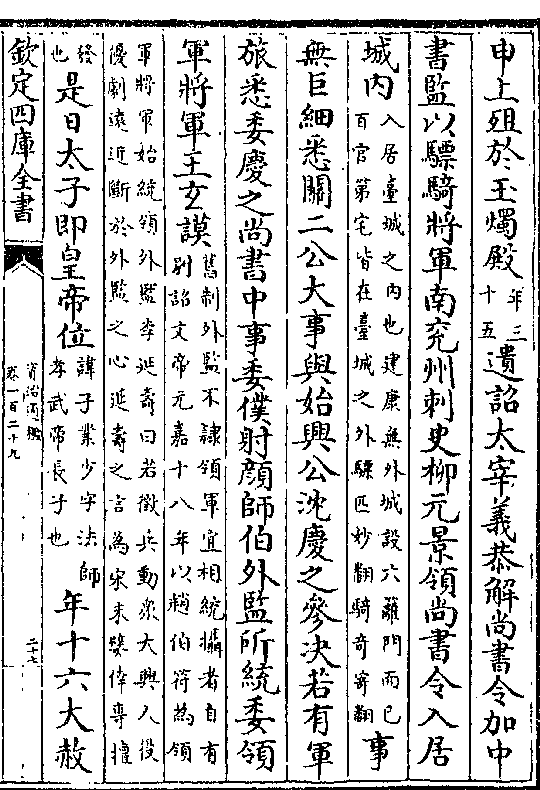 申上殂於玉燭殿年三十五遺詔太宰義恭解尚書令加中
書監以驃騎將軍南兖州刺史柳元景領尚書令入居
城內入居臺城之內也建康無外城設六籬門而已百官第宅皆在臺城之外驃匹妙翻騎奇寄翻事
無巨細悉關二公大事與始興公沈慶之參決若有軍
旅悉委慶之尚書中事委僕射顔師伯外監所統委領
軍將軍王玄謨舊制外監不隸領軍宜相統攝者自有别詔文帝元嘉十八年以趙伯符為領
軍將軍始統領外監李延壽曰若徵兵動衆大興人役優劇遠近斷於外監之心延壽之言為宋末嬖倖專擅
發也是日太子即皇帝位諱子業少字法師孝武帝長子也年十六大赦
欽定四庫全書
資治通鑑
卷一百二十九
二十七